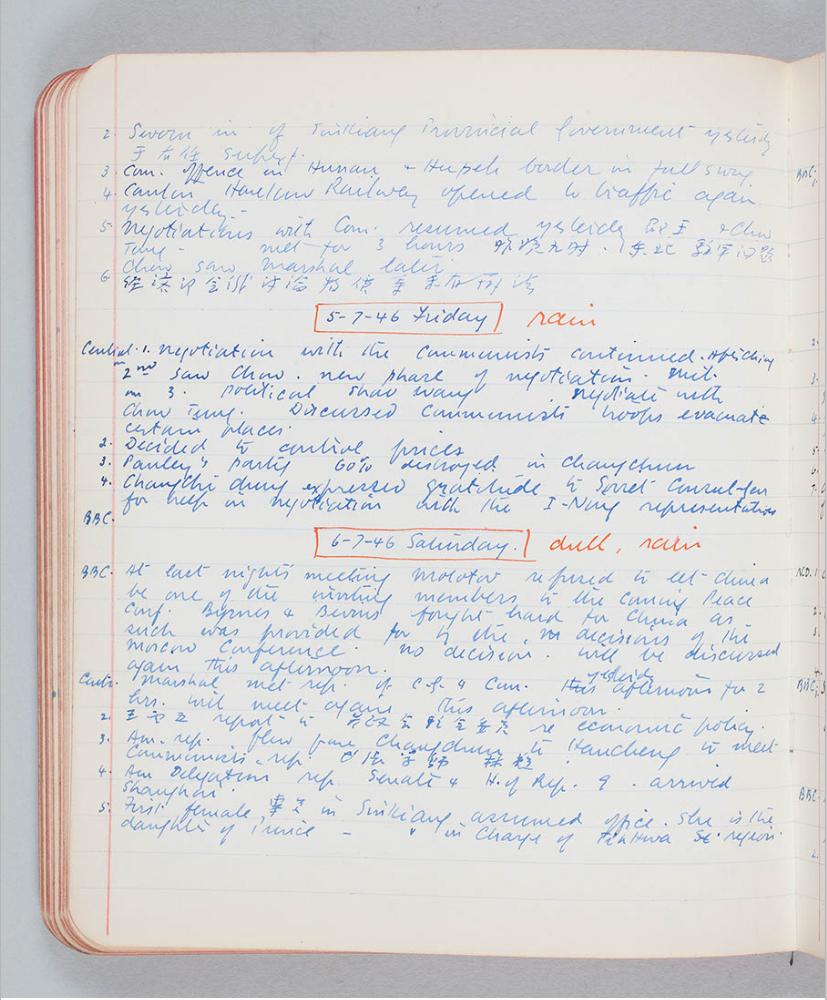 2. Sworn in of Sinkiang Provincial Government yesterday
于右任 supeft.
3. Com. offence in Hunan & Hupeh border in full swing
4. Canton Hankow Railway opened to traffic again
yesterday -
5. Negotiations with Com. resumed yesterday 邵王 & Chow
Tung - met for 3 hours 昨晚九时. 东北 整军问题
Chow saw Marshal later
6.
5-7-46 Friday rain
Central. 1. Negotiation with the Communists continued.
on 2nd saw Chow. new phase of negotiation. met
on 3. political Shao wang negotiate with
Chow Tung. Discussed Communists troops evacuate
certain places.
2. Decided to control prices
3. Pauley's party 60% destroyed in Changchun
4. Chang Chi chung expressed gratitude to Soviet Consul-Gen
for help in negotiation with the I-Ning representatives
BBC.
6-7-46 Saturday. dull, rain
BBC. At last night's meeting Molotov refused to let China
be one of the inviting members to the coming Peace
Conf. Byrnes & Bevins fought hard for China as
such was provided for to the, in decisions of the
Moscow Conference. no decision. will be discussed
again this afternoon.
Centr. Marshal met rep. of C.G. & Com. this yesterday afternoon for 2
hrs. will meet again this afternoon.
2. report to re economic policy.
3. Am. rep. flew from Changchun to Hancheng to meet
Communists rep.
4. Am Delegation rep. Senate & H. of Rep. 9. arrived
Shanghai.
5. First female in Sinkiang assumed office. She is the
daughter of Prince - " in charge of Tihwa region.